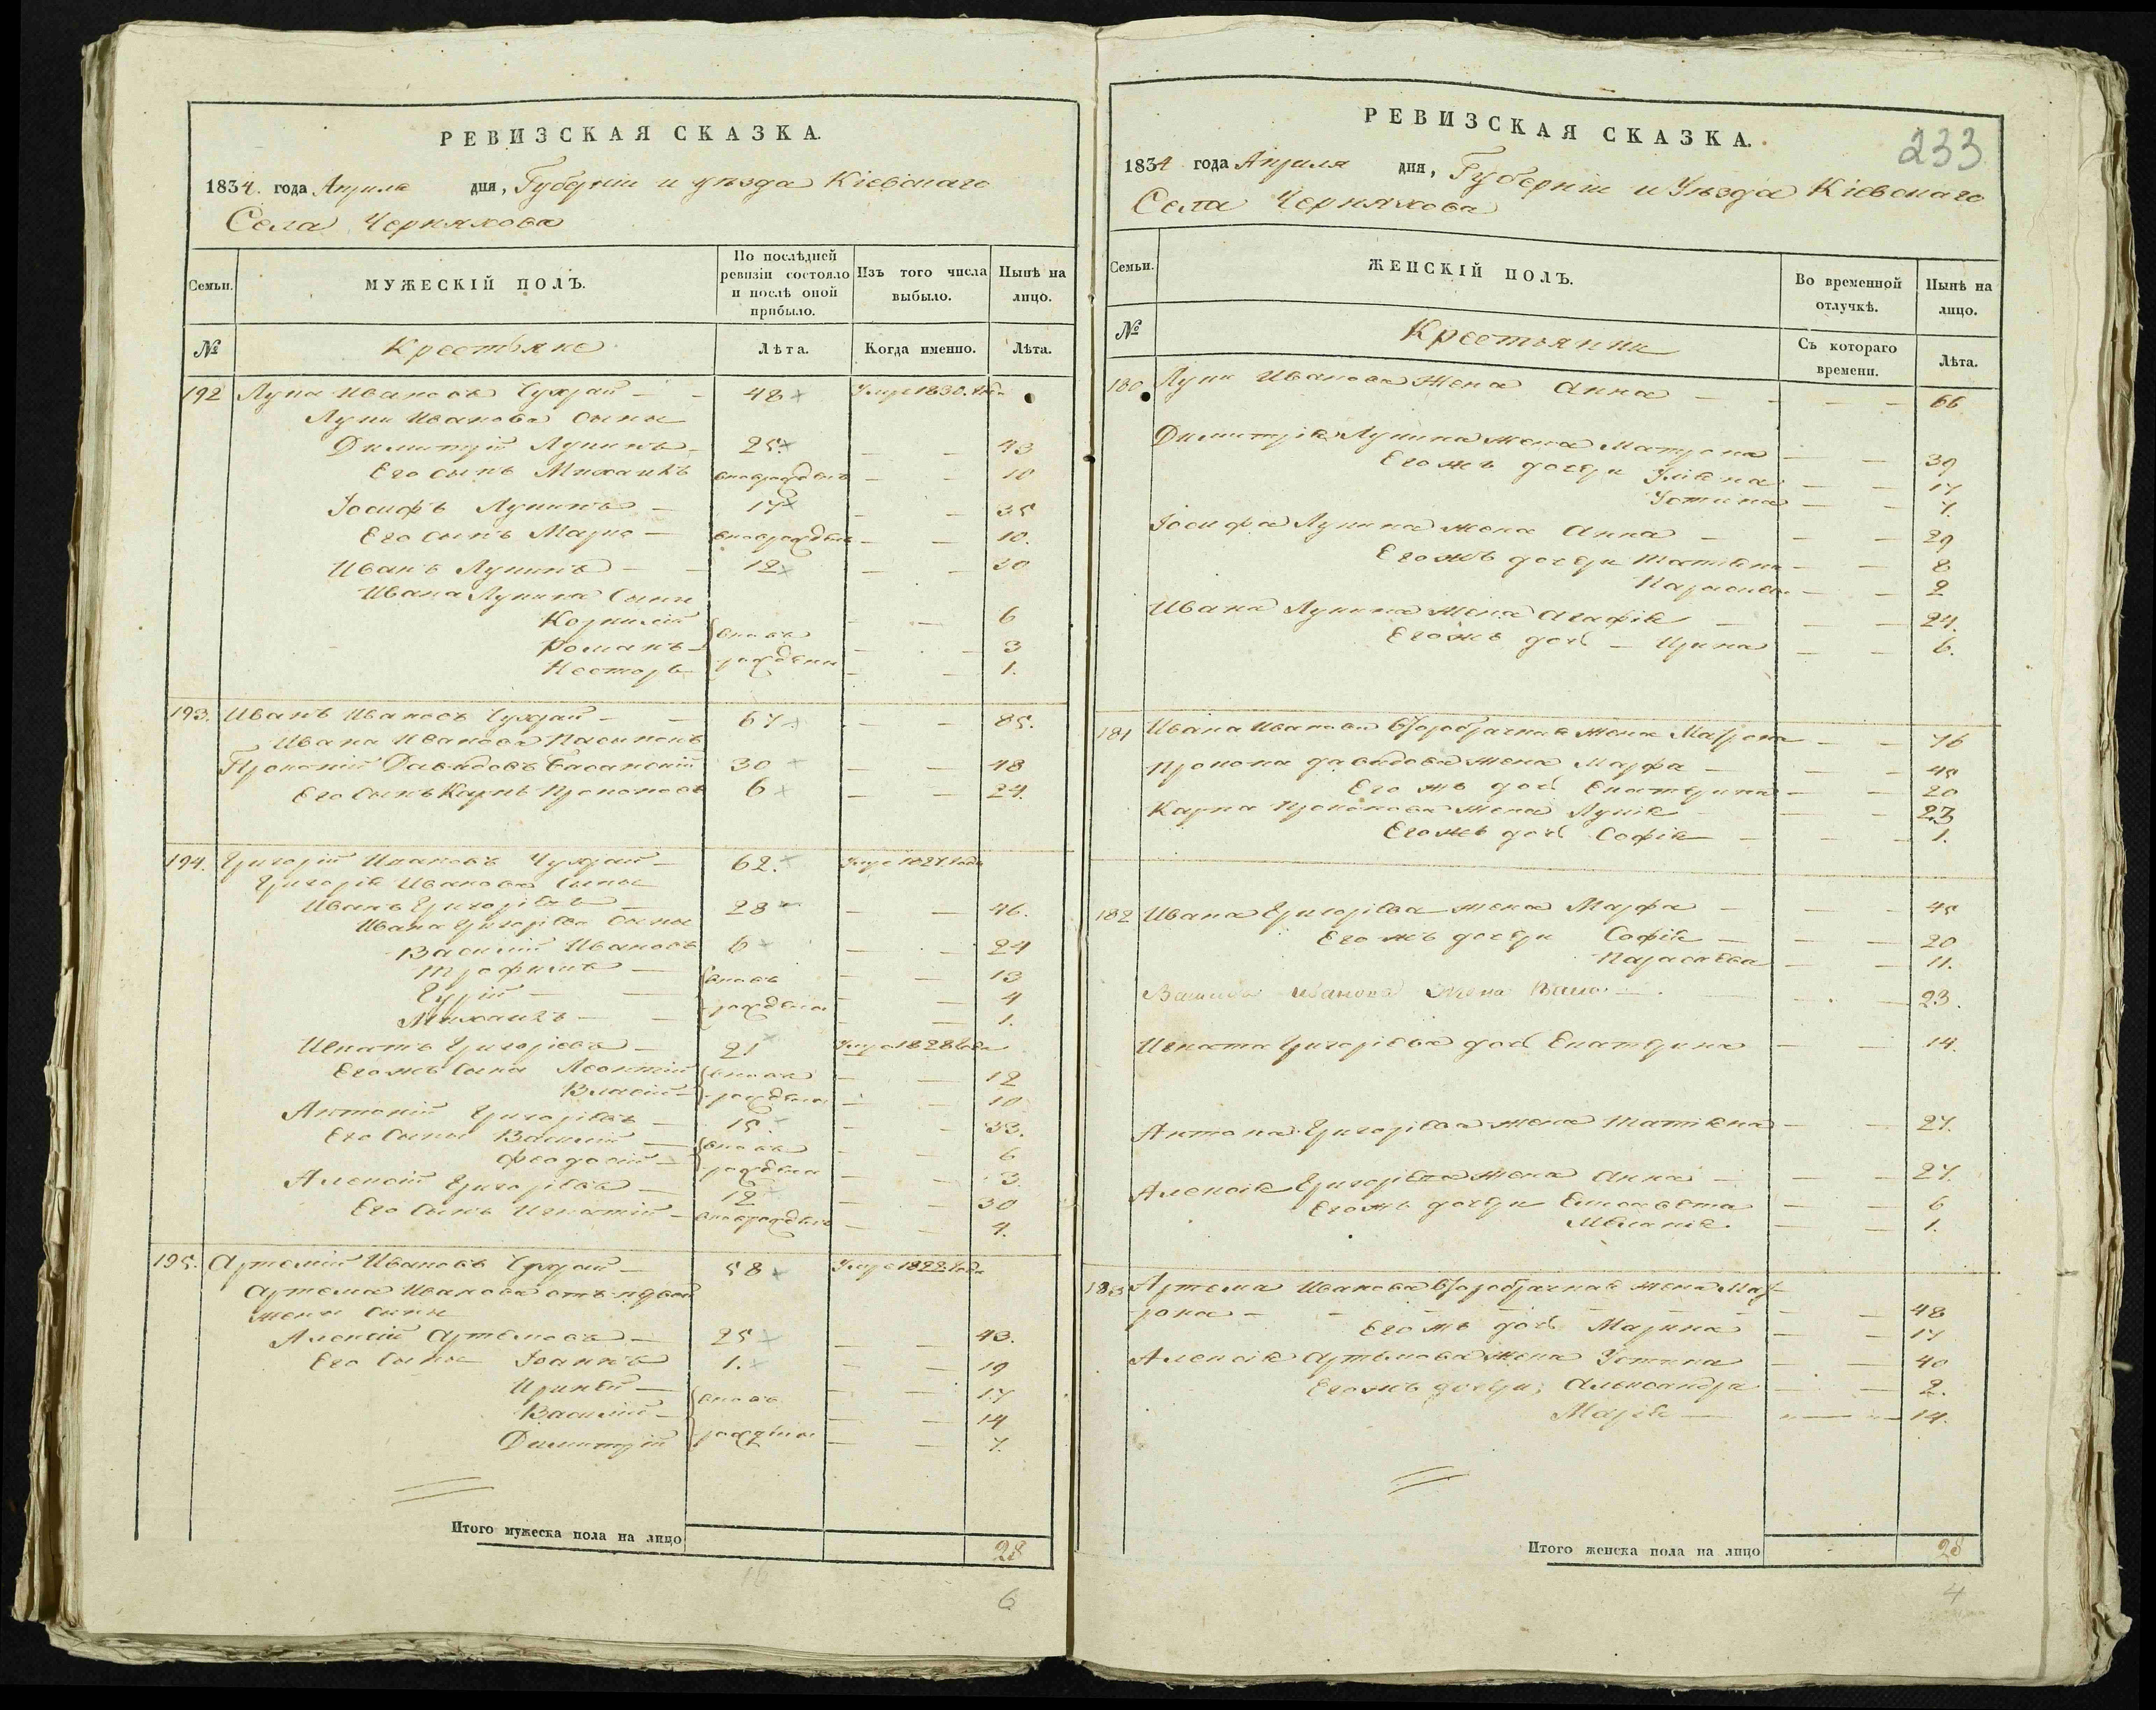 РЕВИЗСКАЯ СКАЗКА.
1834. года Апреля дня, Губерніи и уѣзда Кіевскаго
Села Черняхова
Семьи.
МУЖЕСКІЙ ПОЛЪ.
По послѣдней ревизіи состояло и послѣ оной прибыло.
Изъ того числа выбыло.
Нынѣ на лицо.
№
Крестьяне
Лѣта.
Когда именно.
Лѣта.
192 Лупа Ивановъ Чухрай 48 Умре 1830. года
Лупы Иванова сыны
Димитрій Лупинъ 25. 43
Его сынъ Михаилъ вноврожденъ 10
Іосифъ Лупинъ 17 35
Его сынъ Марко вноврожденъ 10.
Иванъ Лупинъ 12 30
Ивана Лупина сыны
Корнилій вновь 6
Романъ 3
Несторъ рождены 1.
193. Иванъ Ивановъ Чухрай 67 85.
Ивана Иванова пасынокъ
Прокопій Давидовъ 30 48
Его сынъ Карпъ Прокоповъ 6 24.
194. Григорій Ивановъ Чухрай 62. Умре 1827. года
Григорія Иванова сыны
Иванъ Григоріевъ 28 46.
Ивана Григоріева сыны
Василій Ивановъ 6 24
Трофимъ вновь 13
Гурій 4
Михаилъ рождены 1.
Игнатъ Григоріевъ 21 Умре 1828 года
Егожъ сыны Леонтій вновь 12
Власій рождены 10
Антоній Григоріевъ 15 33.
Его сыны Василій вновь 6
Феодосій рождены 3.
Алексій Григоріевъ 12 30
Его сынъ Игнатій вноврожденъ 4.
195. Артемій Ивановъ Чухрай 58 Умре 1822 года
Артема Иванова отъ первой
жены сыны
Алексій Артемовъ 25 43.
Его сыны Іоаннъ 1. 19
Ириней вновь 17
Василій 14
Димитрій рождены 7.
Итого мужеска пола на лицо 28
16
6
РЕВИЗСКАЯ СКАЗКА.
233
1834 года Апреля дня, Губерніи и Уѣзда Кіевскаго
Села Черняхова
Семьи.
ЖЕНСКІЙ ПОЛЪ.
Во временной отлучкѣ.
Нынѣ на лицо.
№
Крестьянки
Съ котораго времени.
Лѣта.
180 Лупы Иванова жена Анна 66
Димитрія Лупина жена Матрона 39
Егожъ дочери Уліяна 17
Устина 7.
Іосифа Лупина жена Анна 29
Егожъ дочери Татіяна 8
Параскева 2
Ивана Лупина жена Агафія 24.
Егожъ дочь Ирина 6.
181 Ивана Иванова второбрачная жена Матрона 76
Прокопа Давидова жена Марфа 45
Его жъ дочь Екатерина 20
Карпа Прокопова жена Лукія 23
Егожъ дочь Софія 1.
182 Ивана Григоріева жена Марфа 45
Егожъ дочери Софія 20
Параскева 11.
Василія Иванова жена 23.
Игната Григоріева дочь Екатерина 14.
Антона Григоріева жена Татіяна 27.
Алексія Григоріева жена Анна 27.
Егожъ дочери Елисавета 6
Меланія 1.
183 Артема Иванова второбрачная жена Мат-
рона 48
Егожъ дочь Марина 17
Алексія Артемова жена Устина 40
Егожъ дочери, Александра 2.
Марія 14.
Итого женска пола на лицо 28
4